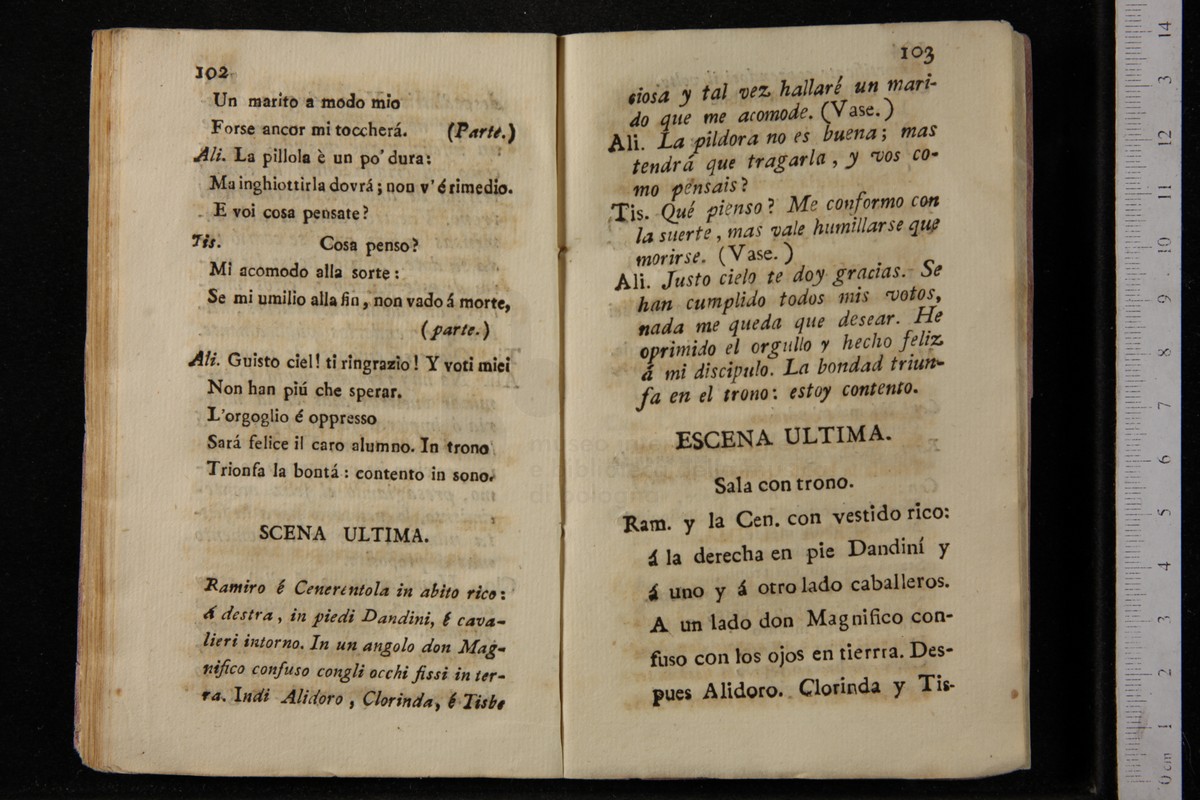 102
Un marito a modo mio
Forse ancor mi toccherá. (Parte.)
Ali. La pillola è un po' dura:
Ma inghiottirla dovrá; non v'é rimedio.
E voi cosa pensate?
Tis. Cosa penso?
Mi acomodo alla sorte:
Se mi umilio alla fin, non vado á morte,
(parte.)
Ali. Guisto ciel! ti ringrazio! Y voti miei
Non han piú che sperar.
L'orgoglio é oppresso
Sará felice il caro alumno. In trono
Trionfa la bontá: contento in sono.
SCENA ULTIMA.
Ramiro é Cenerentola in abito rico:
Á destra, in piedi Dandini, é cava-
lieri intorno. In un angolo don Mag-
nifico confuso congli occhi fissi in ter-
ra. Indi Alidoro, Clorinda, é Tisbe
103
ciosa y tal vez hallaré un mari-
do que me acomode. (Vase.)
Ali. La pildora no es buena; mas
tendrá que tragarla, y vos co-
mo pensais?
Tis. Qué pienso? Me conformo con
la suerte, mas vale humillarse que
morirse. (Vase.)
Ali. Justo cielo te doy gracias. Se
han cumplido todos mis votos,
nada me queda que desear. He
oprimido el orgullo y hecho feliz
á mi discipulo. La bondad triun-
fa en el trono: estoy contento.
ESCENA ULTIMA.
Sala con trono.
Ram. y la Cen. con vestido rico:
á la derecha en pie Dandiní y
á uno y á otro lado caballeros.
A un lado don Magnifico con-
fuso con los ojos en tierrra. Des-
pues Alidoro. Clorinda y Tis-
museo inte
e biblio
di bologna
0 cm 1 2 3 4 5 6 7 8 9 10 11 12 3 14